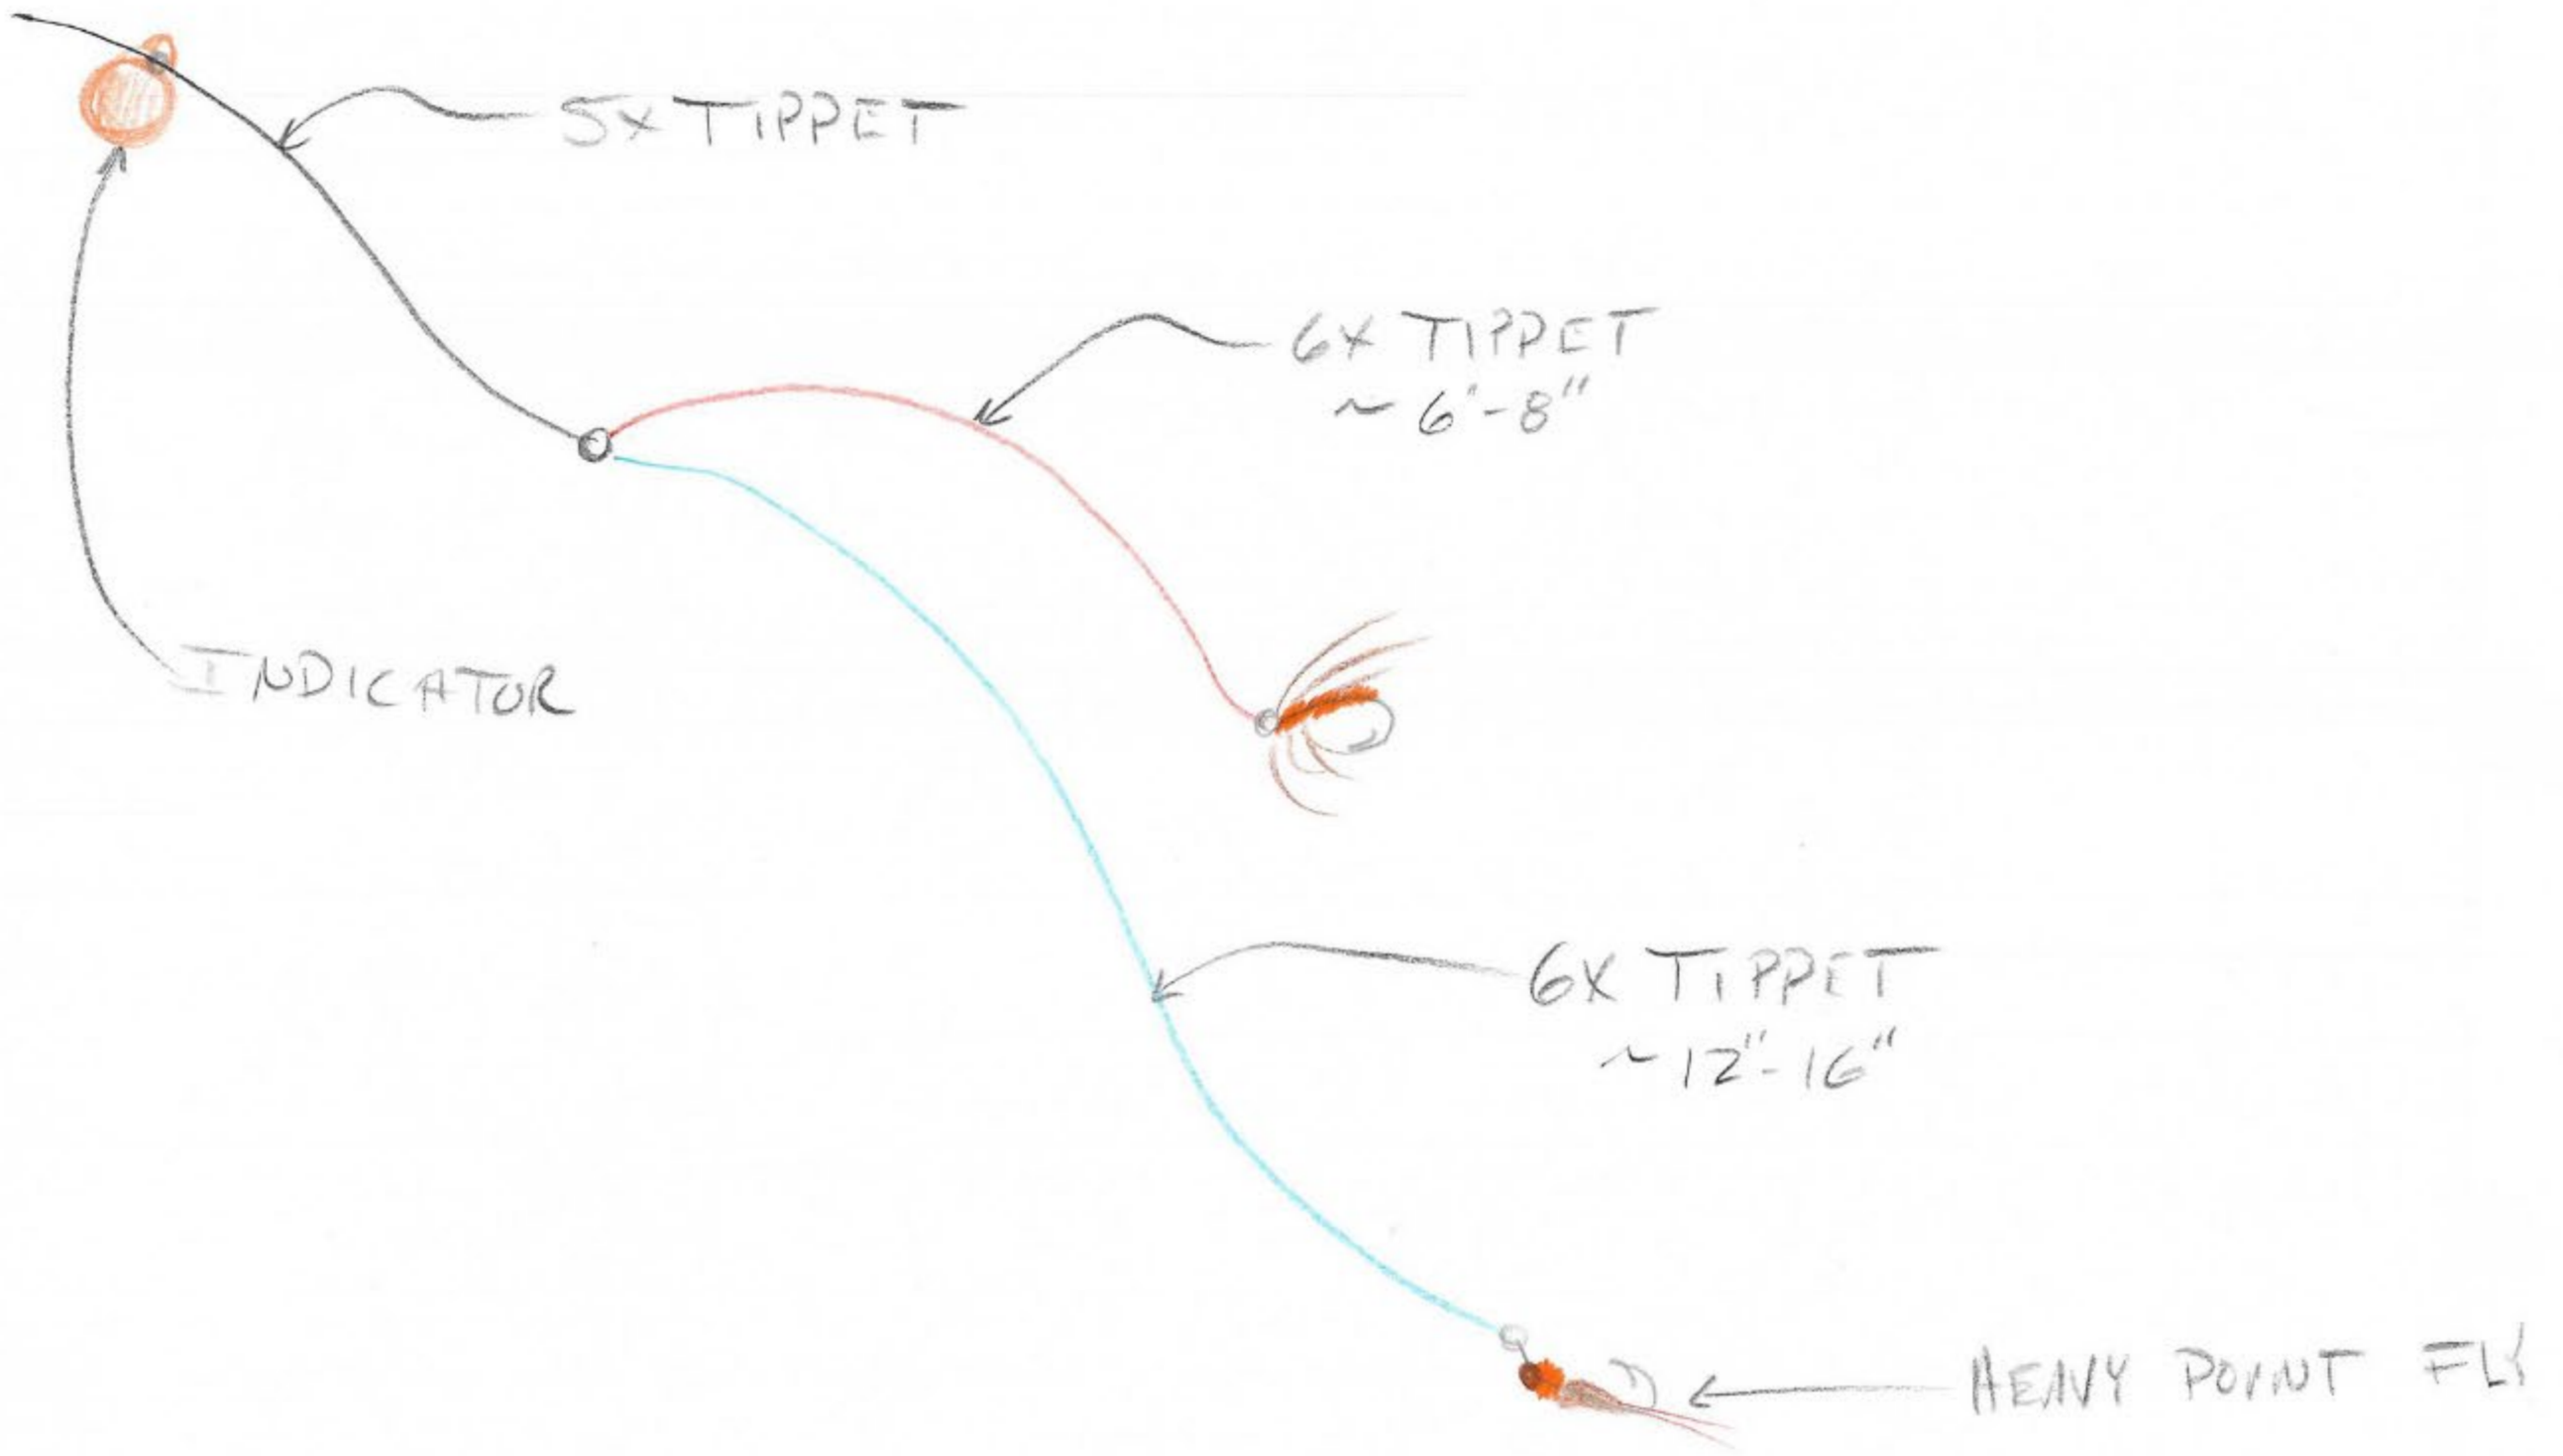 5X TIPPET
6X TIPPET
~ 6"-8"
INDICATOR
6X TIPPET
~ 12"-16"
HEAVY POINT FLY